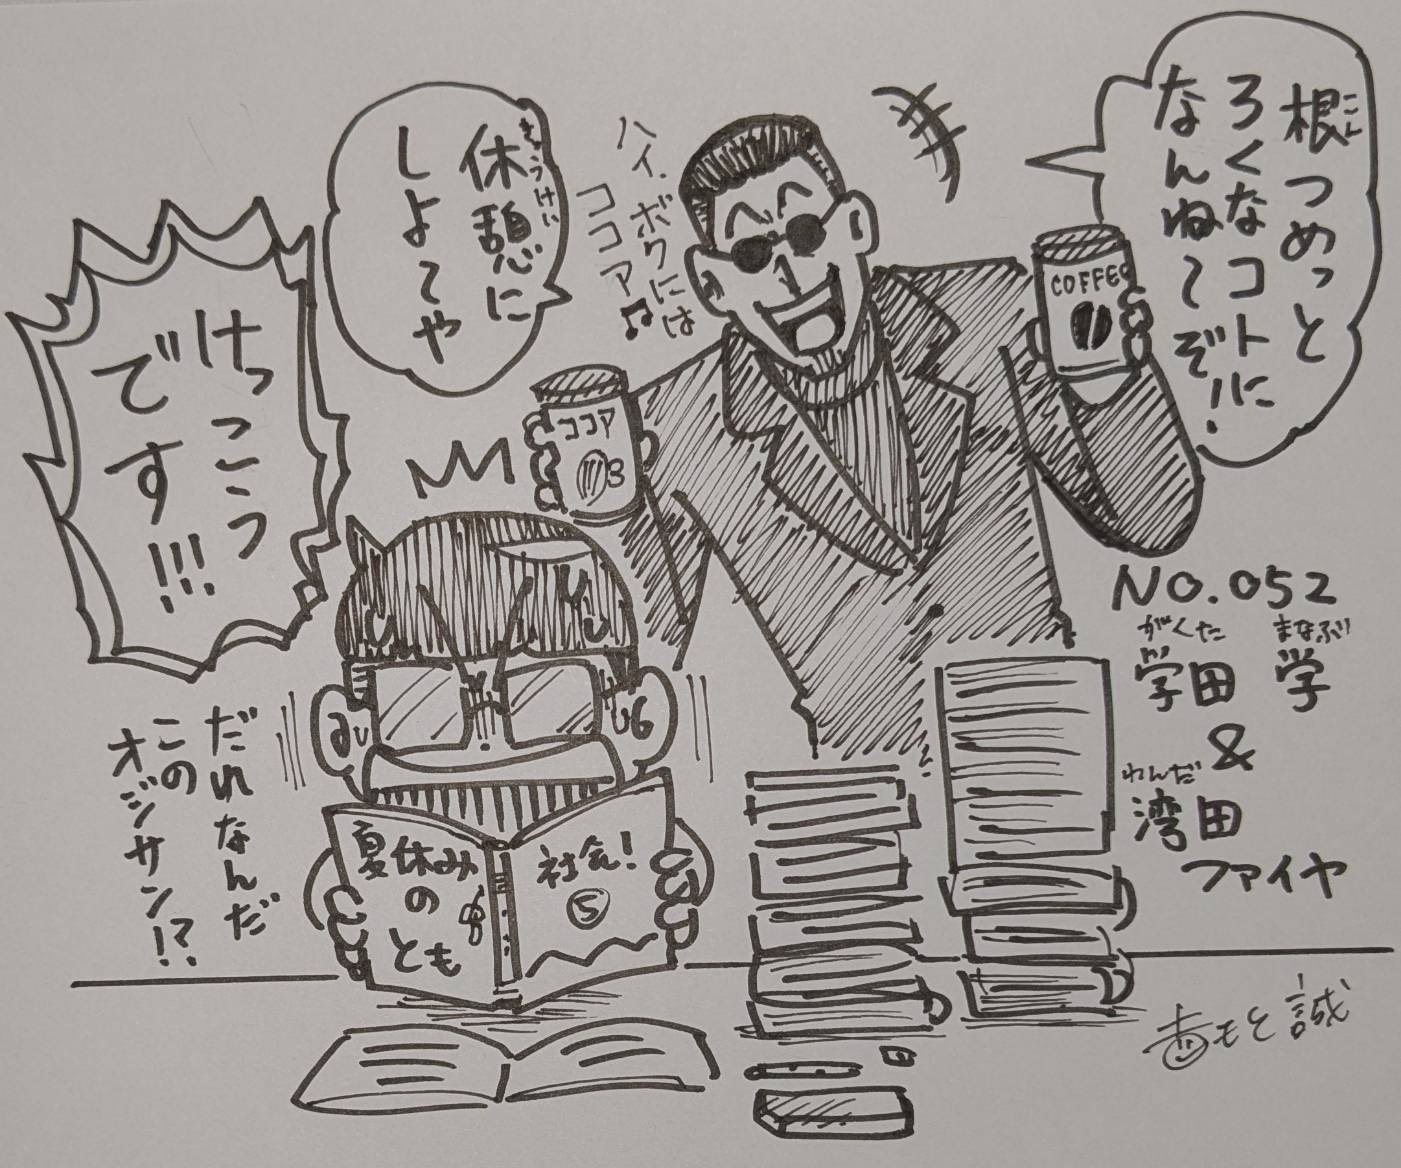 根つめっと
こん
ろくなコトに
なんねーぞ!
休憩に
きゅうけい
しよーや
ハイ、ボクには
ココア♫
COFFEE
ココア
けっこう
です!!!
だれなんだ
この
オジサン!?
夏休み
の
とも
社会!
⑤
NO.052
がくた まなぶ
学田 学
&
わんだ
湾田
ファイヤ